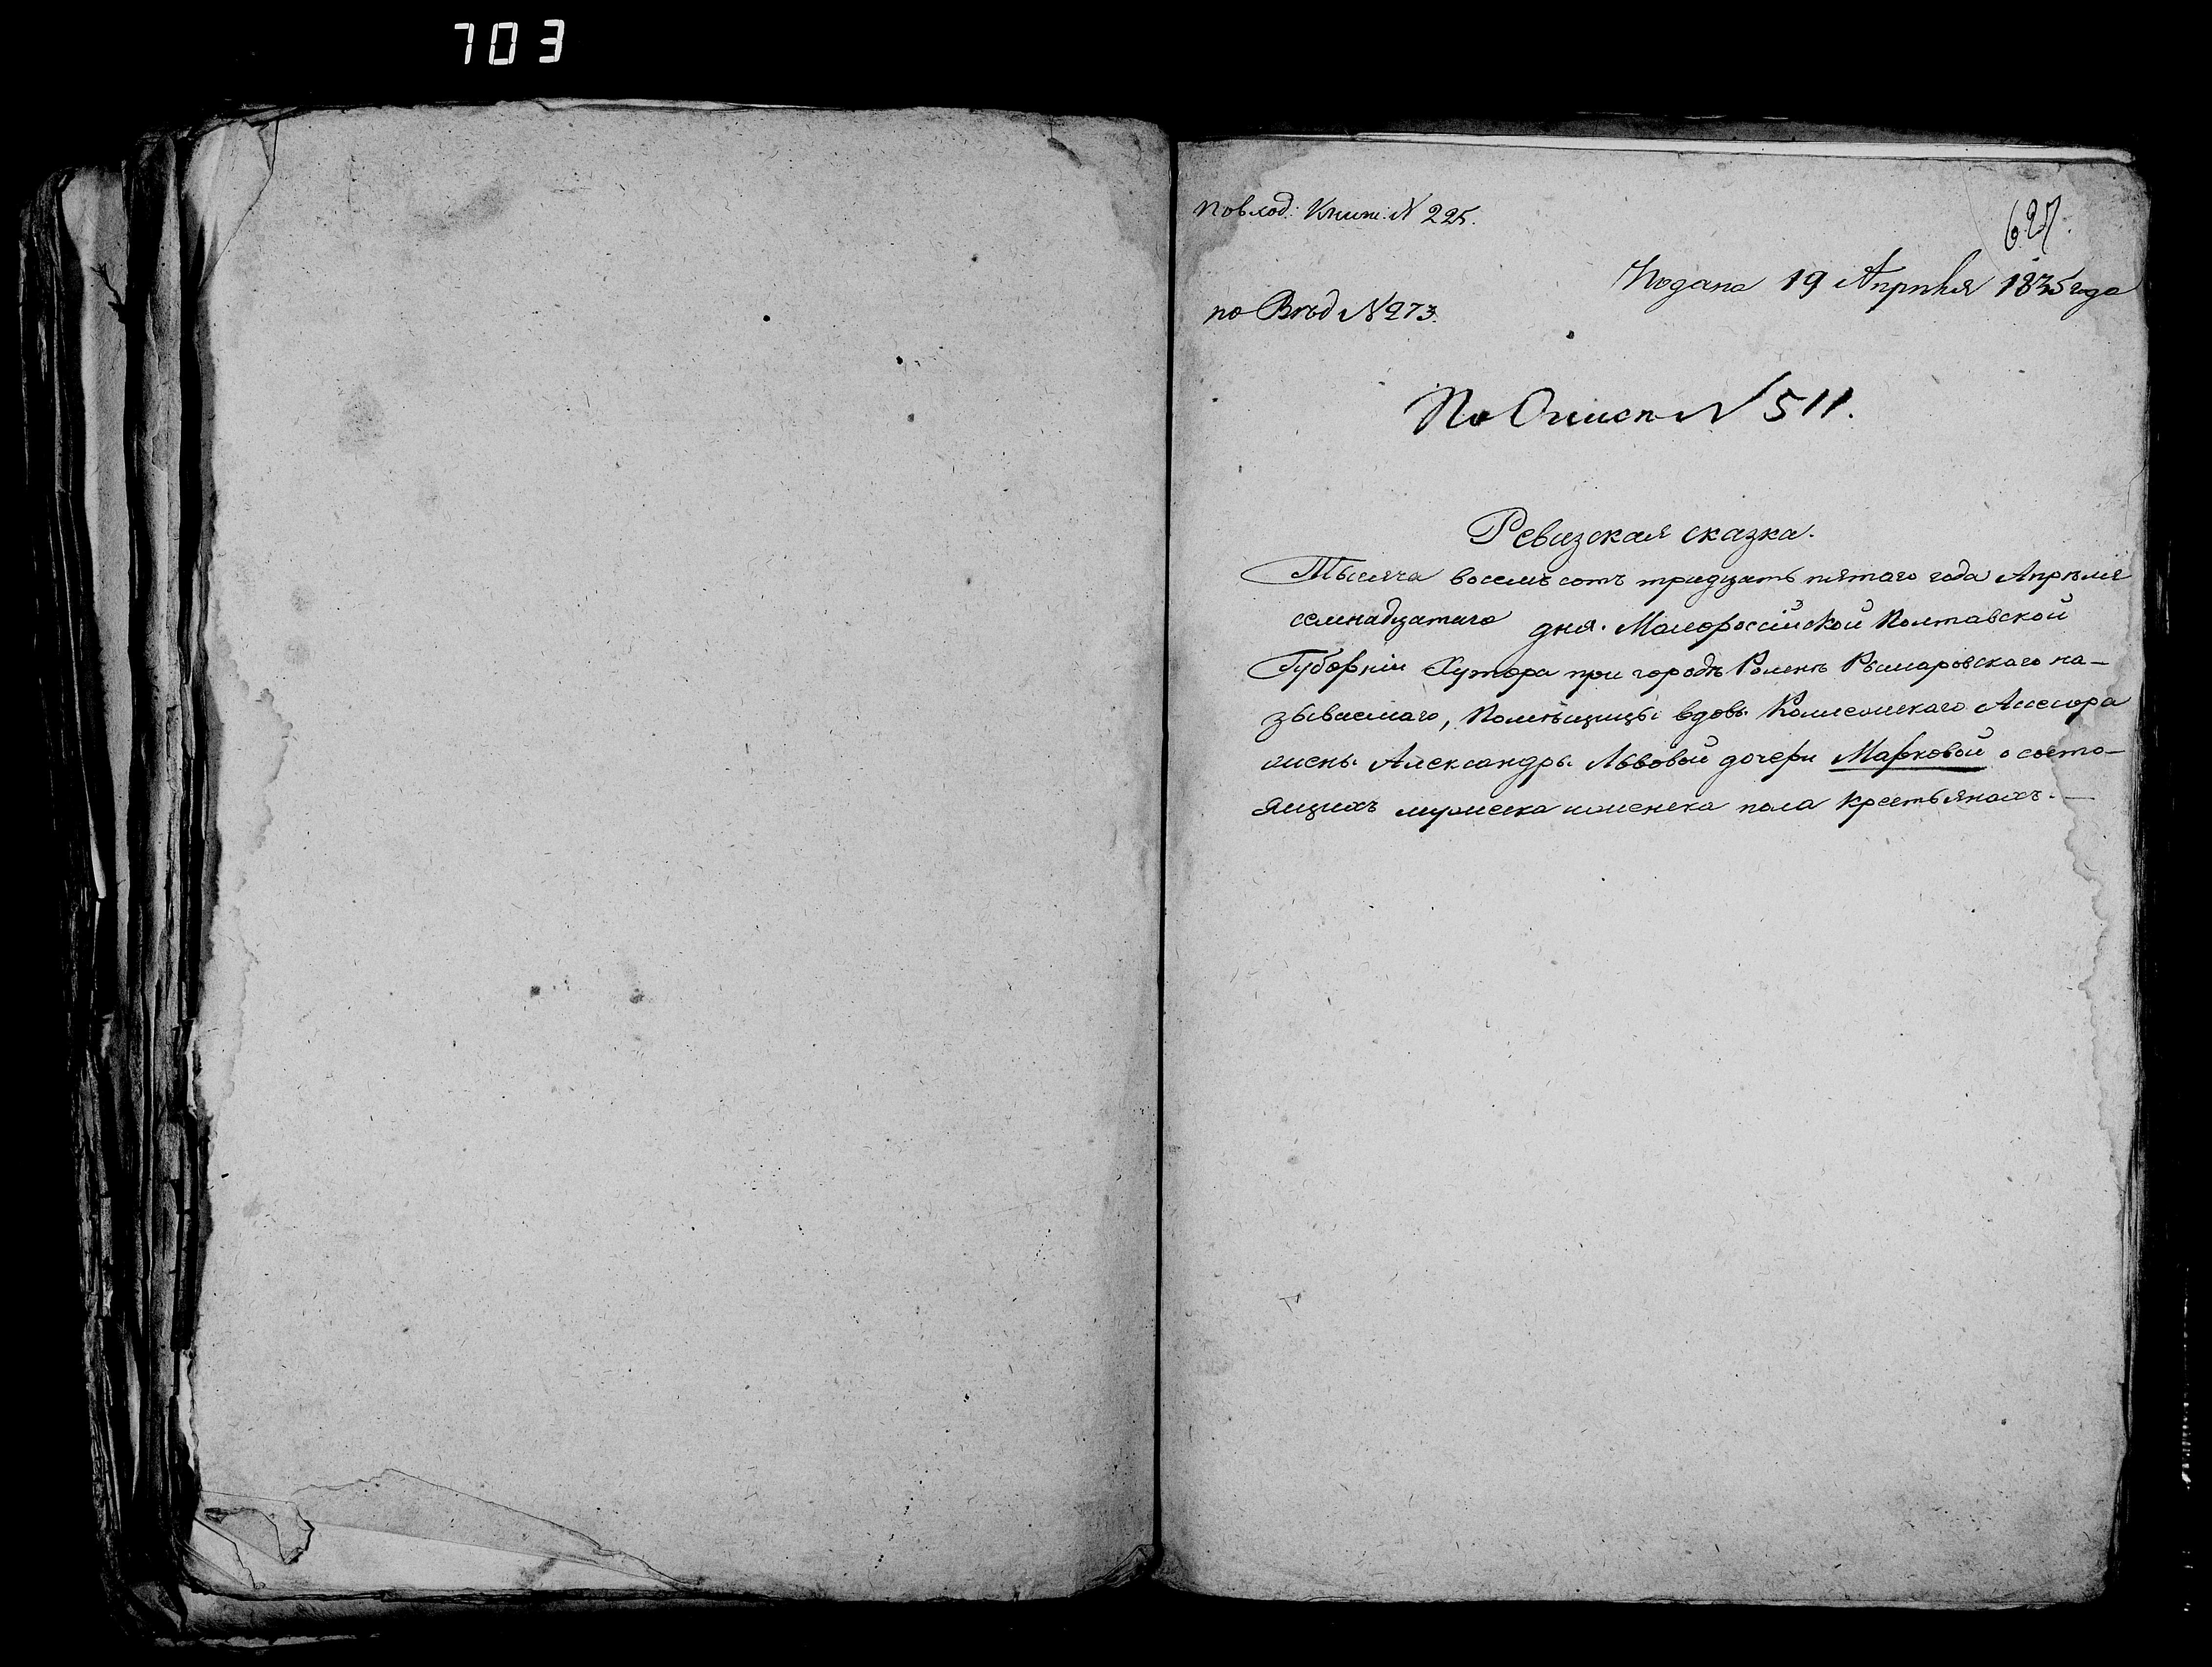 703
По вход: Книг: N 225.
627.
Подана 19 Апрѣля 1835 года
по Вѣд N 273.
По Описи N 511.
Ревизская сказка.
Тысяча восемь сотъ тридцать пятаго года Апрѣля
семнадцатого дня. Малороссійской Полтавской
Губерніи Хутора при городѣ Роменѣ Рымаровскаго на-
зываемаго, Помѣщицы вдовы Коллежскаго Ассесора
жены Александры Львовой дочери Марковой о состо-
ящихъ мужеска и женска пола крестьянахъ.